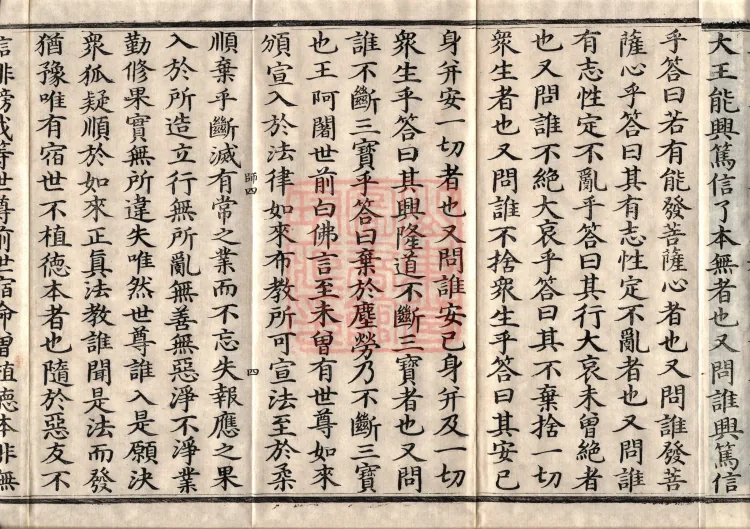 大王能興篤信了本無者也又問誰興篤信
乎答曰若有能發菩薩心者也又問誰發菩
薩心乎答曰其有志性定不亂者也又問誰
有志性定不亂乎答曰其行大哀未曾絕者
也又問誰不絕大哀乎答曰其不棄捨一切
衆生者也又問誰不捨衆生乎答曰其安已
身并安一切者也又問誰安已身并及一切
衆生乎答曰其興隆道不斷三寶者也又問
誰不斷三寶乎答曰棄於塵勞乃不斷三寶
也王阿闍世前白佛言至未曾有世尊如來
頒宣入於法律如來布教所可宣法至於柔
師四 四
順棄乎斷滅有常之業而不忘失報應之果
入於所造立行無所亂無善無惡淨不淨業
勤修果實無所違失唯然世尊誰入是願決
衆狐疑順於如來正真法教誰聞是法而發
猶豫唯有宿世不植德本者也隨於惡友不
信誹謗或等世尊前世宿命曾植德本非無